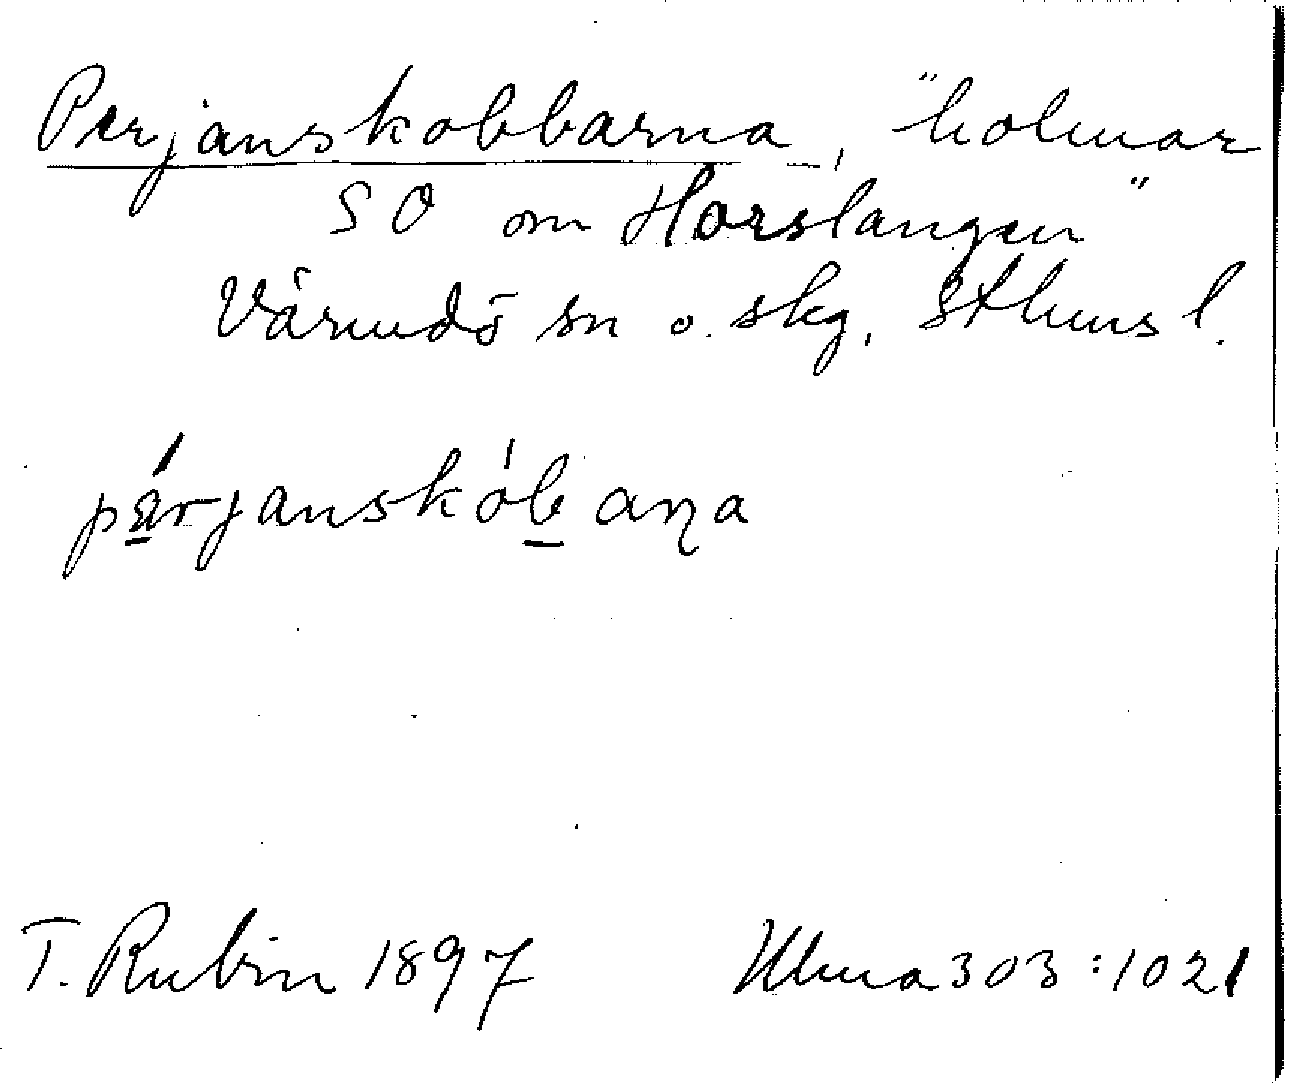 Perjanskobbarna, "holmar
SO om Horslangen"
Värmdö sn o. skg, Sthms l.
pärjanskób aṇa
T. Rubin 1897 Ulma 303:1021